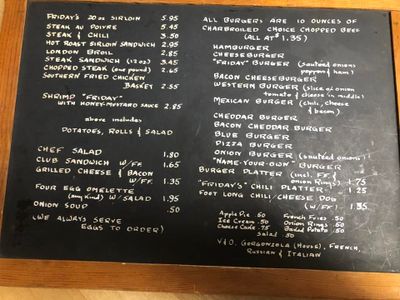 FRIDAY'S 20oz SIRLOIN 5.95
STEAK AU POIVRE 5.45
STEAK & CHILI 3.50
HOT ROAST SIRLOIN SANDWICH 2.95
LONDON BROIL 2.85
STEAK SANDWICH (12oz) 3.45
CHOPPED STEAK (one pound) 2.65
SOUTHERN FRIED CHICKEN
BASKET 2.55
SHRIMP "FRIDAY"
WITH HONEY-MUSTARD SAUCE 2.85
above includes
POTATOES, ROLLS & SALAD
CHEF SALAD 1.80
CLUB SANDWICH W/FF. 1.65
GRILLED CHEESE & BACON
W/FF 1.35
FOUR EGG OMELETTE
(any kind) W/SALAD 1.95
ONION SOUP .50
(WE ALWAYS SERVE
EGGS TO ORDER)
ALL BURGERS ARE 10 OUNCES OF
CHARBROILED CHOICE CHOPPED BEEF
(ALL AT $1.35)
HAMBURGER
CHEESEBURGER
"FRIDAY" BURGER (sautéed onions
peppers & ham)
BACON CHEESEBURGER
WESTERN BURGER (slice of onion
tomato & cheese in middle)
MEXICAN BURGER (chili, cheese
& bacon)
CHEDDAR BURGER
BACON CHEDDAR BURGER
BLUE BURGER
PIZZA BURGER
ONION BURGER (sautéed onions)
"NAME-YOUR-OWN" BURGER
BURGER PLATTER (incl. FF &
onion Rings) 1.75
"FRIDAY'S" CHILI PLATTER 1.25
FOOT LONG CHILI/CHEESE DOG
(W/FF) 1.35
Apple Pie .50 French Fries .50
Ice Cream .50 Onion Rings .50
Cheese Cake .75 Baked Potato .50
Salad .50
V&O, GORGONZOLA (HOUSE), FRENCH,
RUSSIAN & ITALIAN